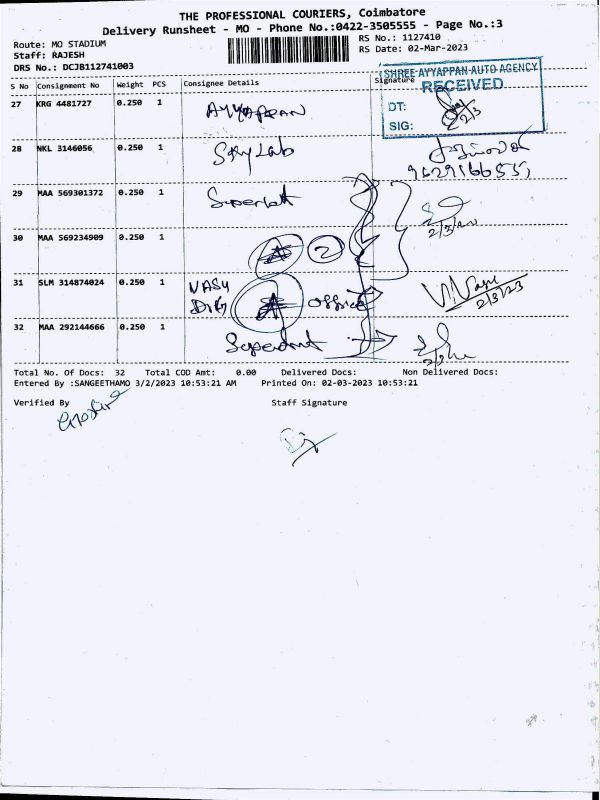 THE PROFESSIONAL COURIERS, Coimbatore
Delivery Runsheet - MO - Phone No.:0422-3505555 - Page No.:3
Route: MO STADIUM
Staff: RAJESH
DRS No.: DCJB112741003
RS No.: 1127410
RS Date: 02-Mar-2023
S No Consignment No Weight PCS Consignee Details Signature
SHREE AYYAPPAN AUTO AGENCY
RECEIVED
DT: 2/3
SIG:
27 KRG 4481727 0.250 1 AYYAPPAN
28 NKL 3146056 0.250 1 Sky Lab
29 MAA 569301372 0.250 1
30 MAA 569234909 0.250 1 2
31 SLM 314874024 0.250 1 VASU office 2/3/23
32 MAA 292144666 0.250 1
Total No. Of Docs: 32 Total COD Amt: 0.00 Delivered Docs: Non Delivered Docs:
Entered By :SANGEETHAMO 3/2/2023 10:53:21 AM Printed On: 02-03-2023 10:53:21
Verified By Staff Signature